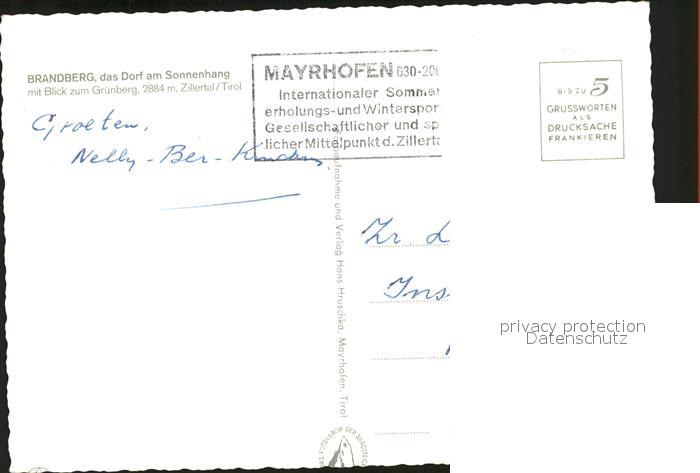 BRANDBERG, das Dorf am Sonnenhang
mit Blick zum Grünberg, 2884 m, Zillertal/Tirol
MAYRHOFEN 630-20
Internationaler Sommer
erholungs-und Winterspor
Gesellschaftlicher und sp
licher Mittelpunkt d. Zillert
BIS ZU 5
GRUSSWORTEN
ALS
DRUCKSACHE
FRANKIEREN
Groeten,
Nelly - Ber -
aufnahme und Verlag Hans Hruschka, Mayrhofen, Tirol
Zr.
Ins
privacy protection
Datenschutz
DAS FOTOLABOR DER BERGSTEIG